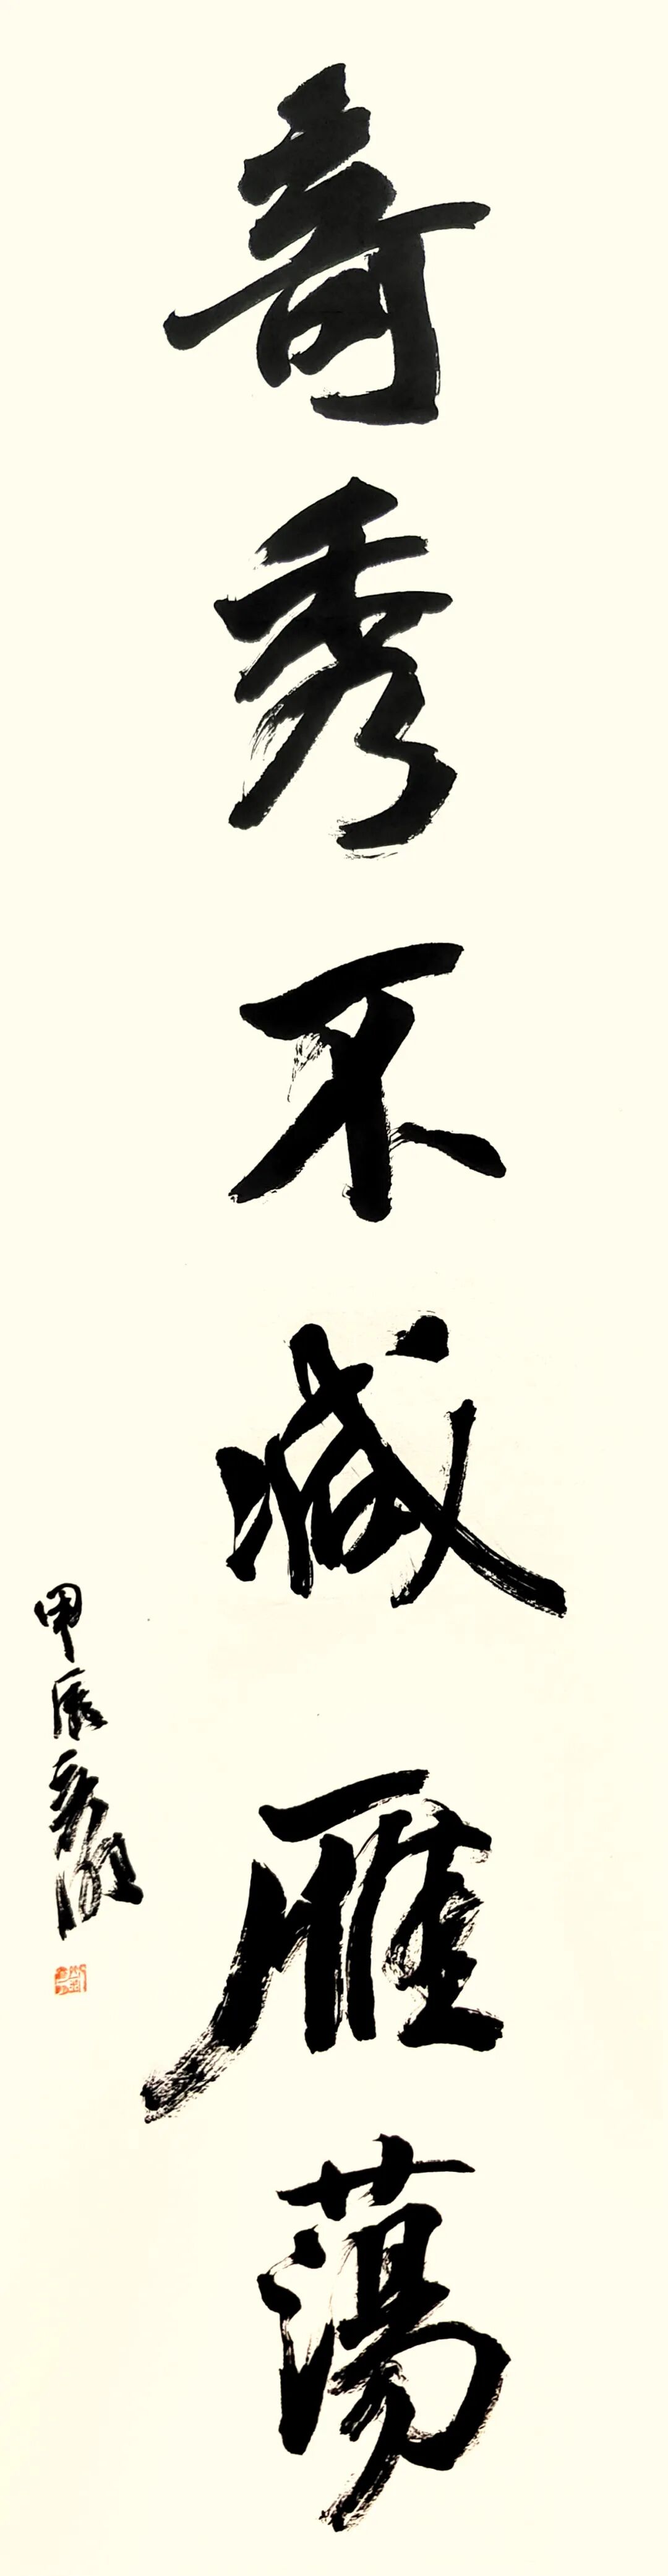 奇秀不减雁荡
甲辰